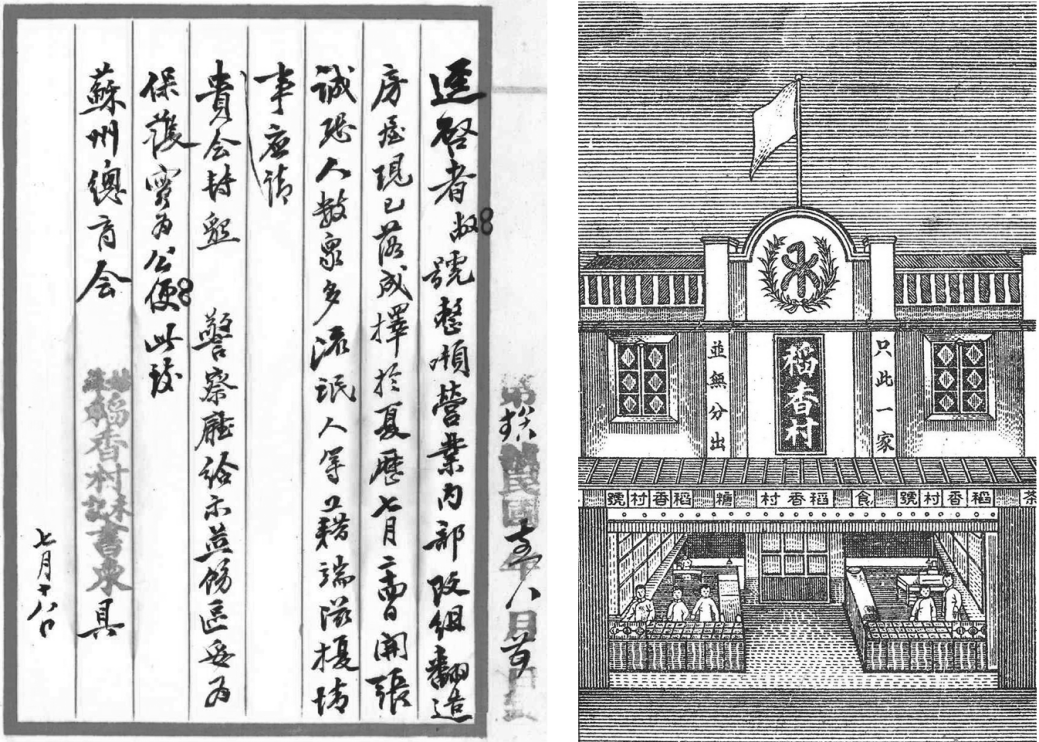 逕啓者敝號整頓營業内部改組翻造
房屋現已落成擇於夏歷七月日開張
誠恐人數衆多流氓人等藉端滋擾情
事應請
貴会懇 警察廳給示並飭區妥為
保護實為公便此致
蘇州總商会
稻香村禾記書柬 具
七月十八日
只此一家
稻香村
並無分出
茶 稻香村號 食 稻香村 糖 稻香村號